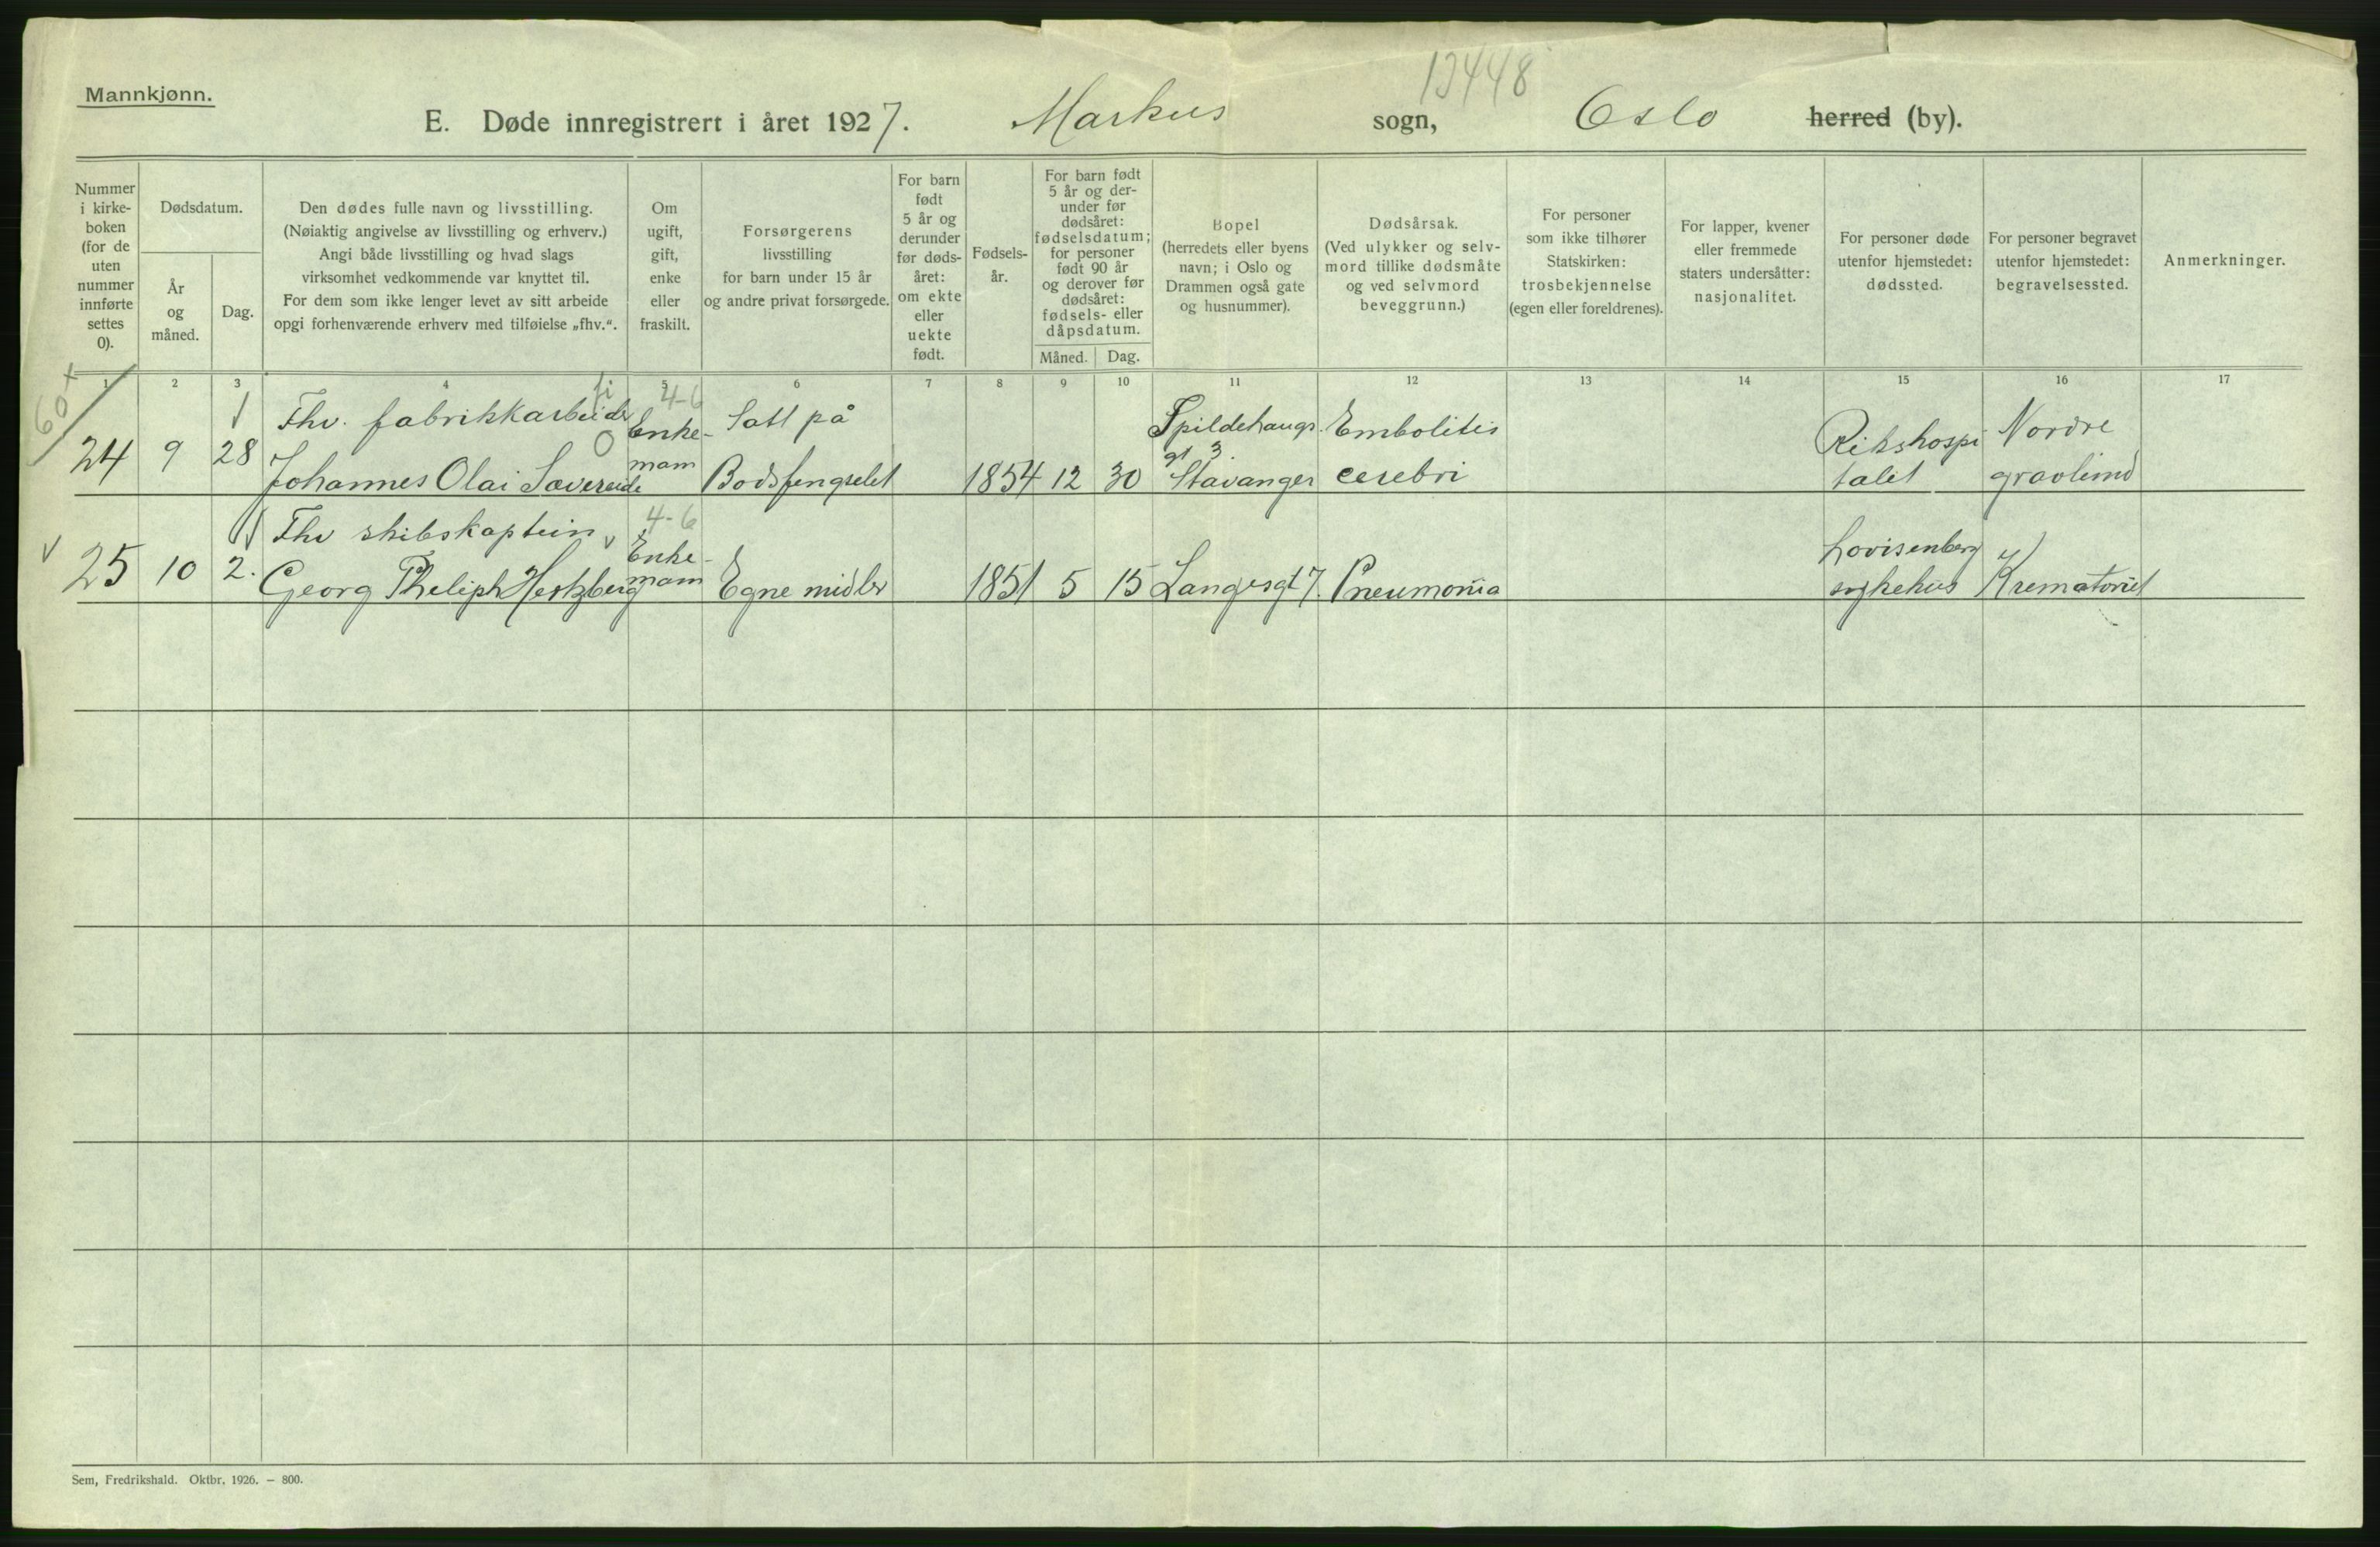 Mannkjønn.
13448
E. Døde innregistrert i året 1927. Markus sogn, Oslo herred (by).
Nummer i kirke-boken (for de uten nummer innførte settes 0).
Dødsdatum.
År og måned.
Dag.
Den dødes fulle navn og livsstilling.
(Nøiaktig angivelse av livsstilling og erhverv.)
Angi både livsstilling og hvad slags
virksomhet vedkommende var knyttet til.
For dem som ikke lenger levet av sitt arbeide
opgi forhenværende erhverv med tilføielse „fhv.“.
Om ugift, gift, enke eller fraskilt.
Forsørgerens
livsstilling
for barn under 15 år
og andre privat forsørgede.
For barn født 5 år og derunder før døds-året: om ekte eller uekte født.
Fødsels-år.
For barn født 5 år og der-under før dødsåret: fødselsdatum; for personer født 90 år og derover før dødsåret: fødsels- eller dåpsdatum.
Måned.
Dag.
Bopel
(herredets eller byens
navn; i Oslo og
Drammen også gate
og husnummer).
Dødsårsak.
(Ved ulykker og selv-
mord tillike dødsmåte
og ved selvmord
beveggrunn.)
For personer
som ikke tilhører
Statskirken:
trosbekjennelse
(egen eller foreldrenes).
For lapper, kvener
eller fremmede
staters undersåtter:
nasjonalitet.
For personer døde
utenfor hjemstedet:
dødssted.
For personer begravet
utenfor hjemstedet:
begravelsessted.
Anmerkninger.
1 2 3 4 5 6 7 8 9 10 11 12 13 14 15 16 17
60+
fi 4-6
Fhv. fabrikkarbeider Enke- Satt på Spildehaugs. Embolitis Rikshospi Nordre
24 9 28 0 mann gt 3.
Johannes Olai Sævereide Bodsfengselet 1854 12 30 Stavanger cerebri talet gravlund
4-6
Fhv skibskaptein Enke- Lovisenberg
25 10 2. Georg Pheliph Hertzberg mann Egne midler 1851 5 15 Langesgt 7. Pneumonia sykehus Krematoriet
Sem, Fredrikshald. Oktbr. 1926. — 800.